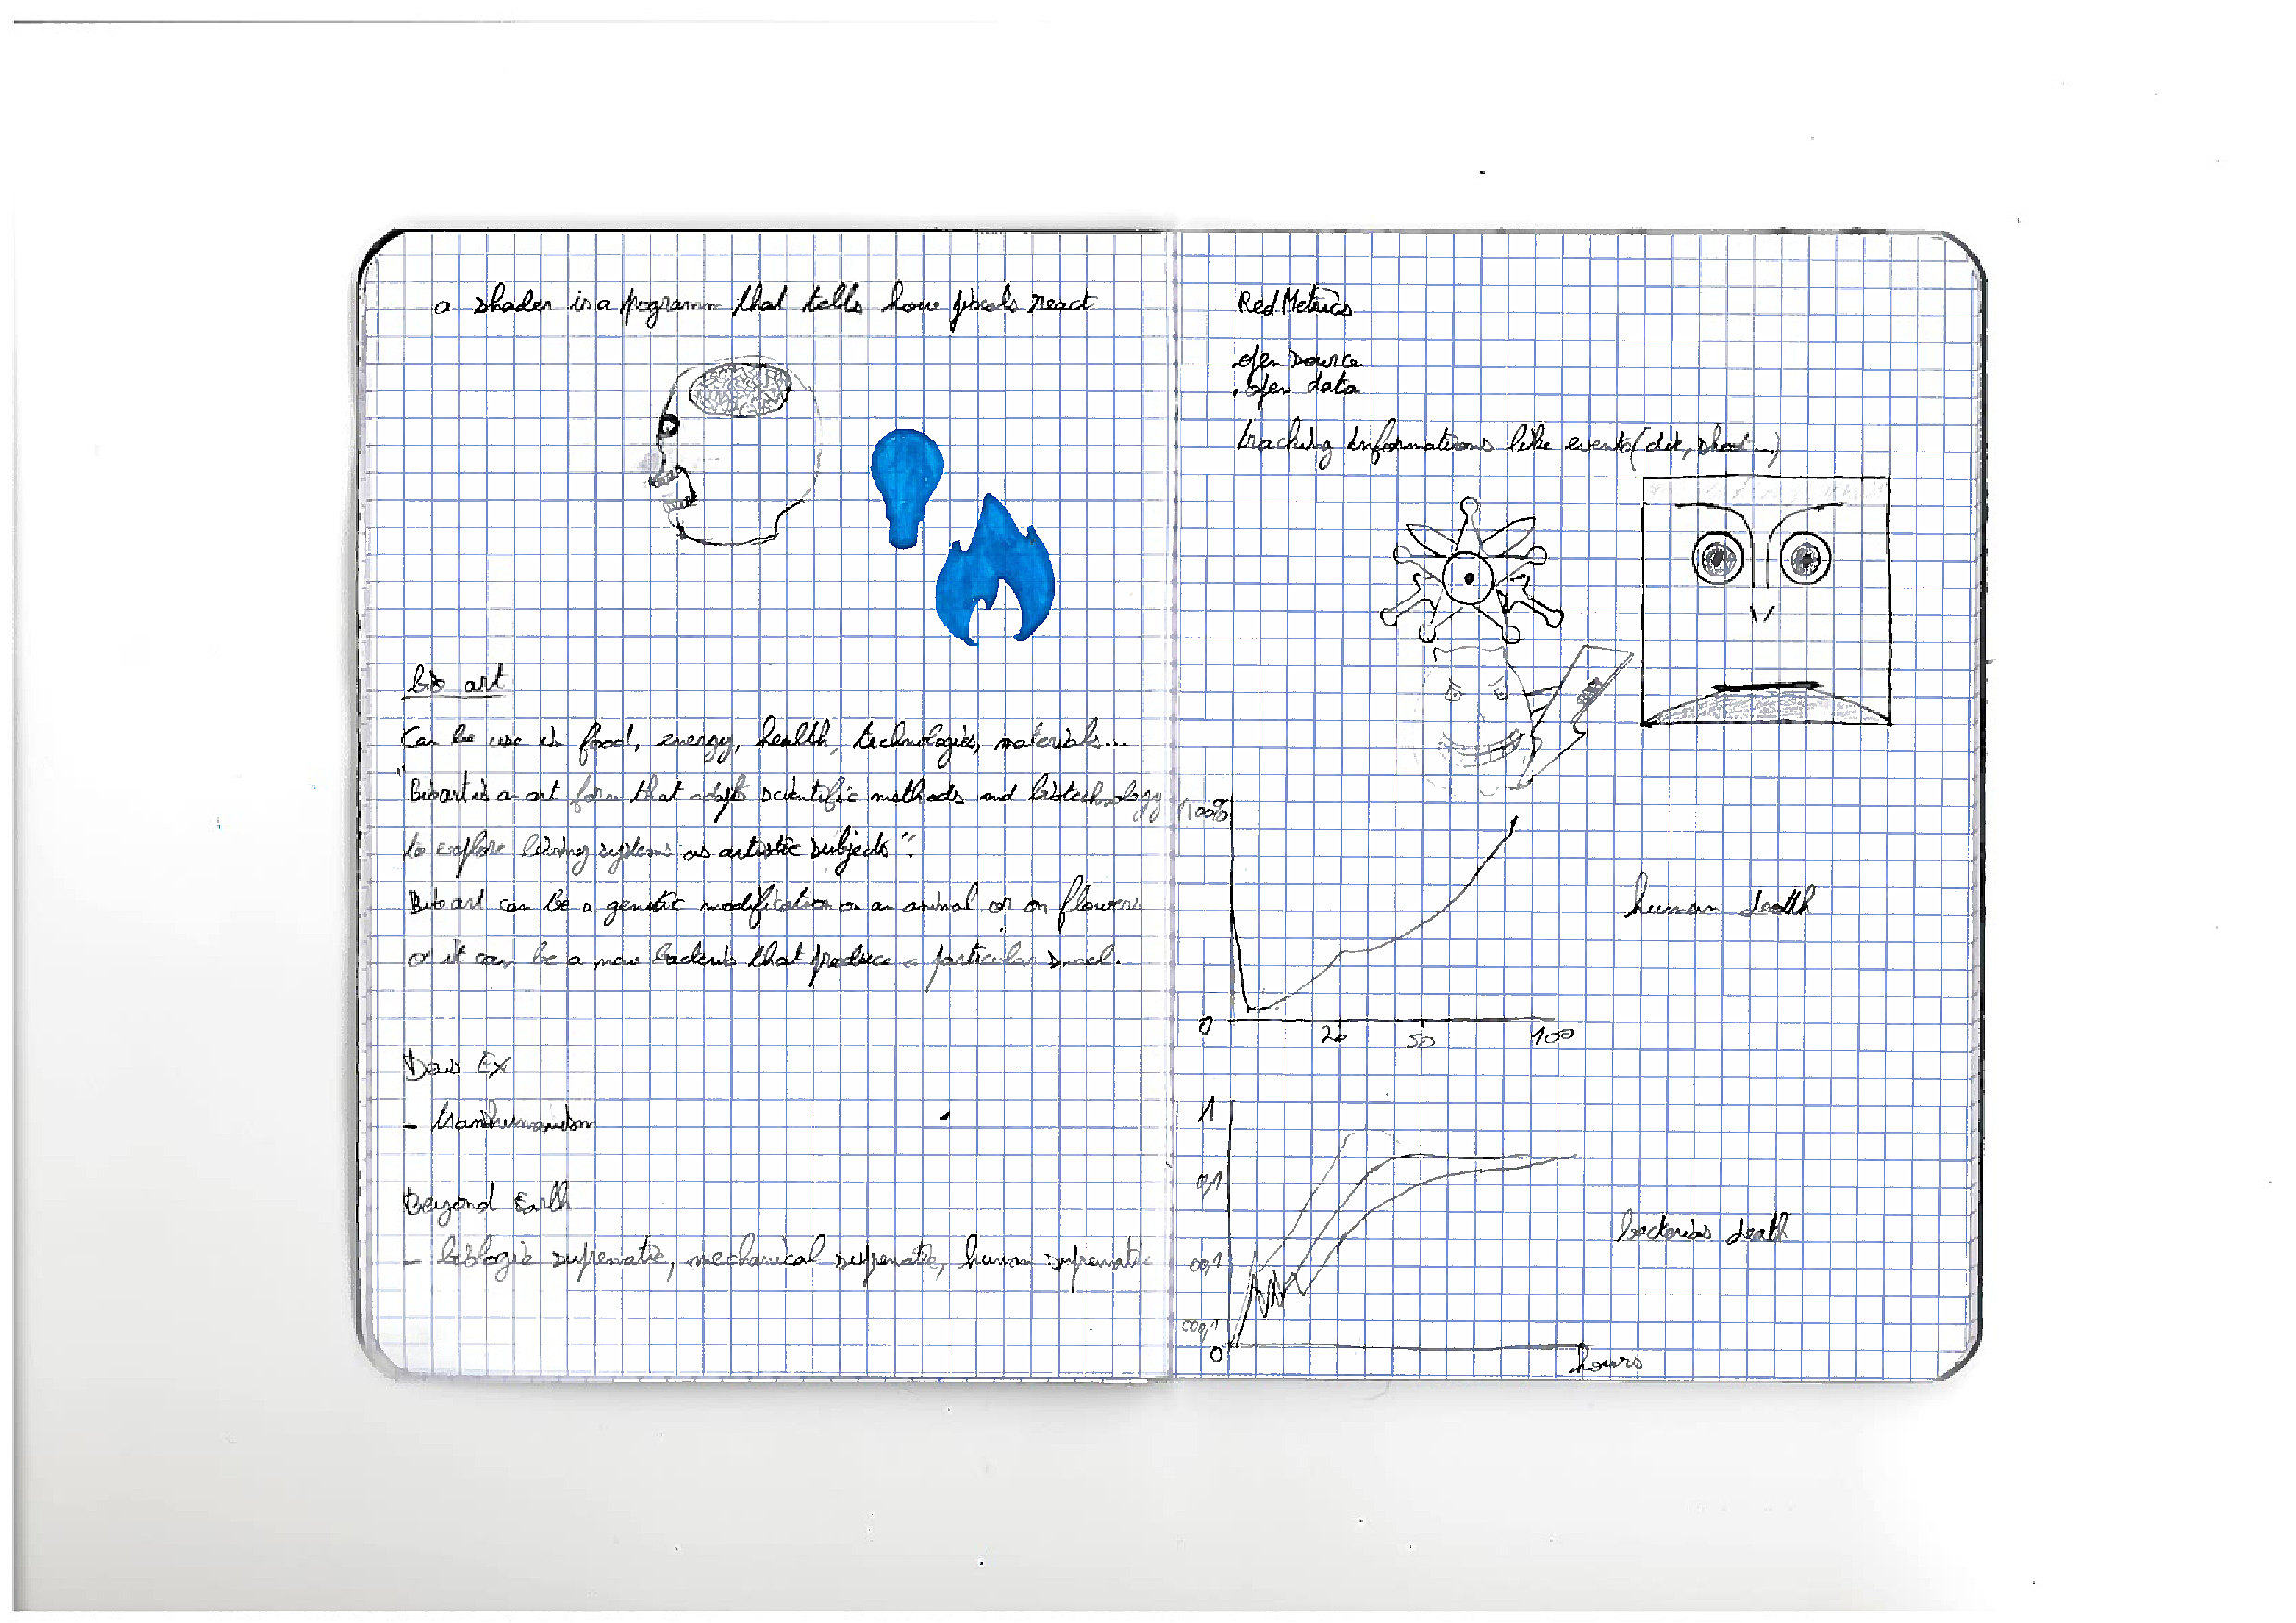 a shader is a programm that tells how pixels react
bio art
Can be use in food, energy, health, technologies, materials...
"Bioart is a art form that adapt scientific methods and biotechnology
to explore living systems as artistic subjects".
Bioart can be a genetic modification on an animal or on flowers
or it can be a new bacteria that produce a particular smel.
Deus Ex
- transhumanism
Beyond Earth
- biologic suprematie, mechanical suprematie, human suprematie
RedMetrics
. open source
. open data
tracking informations like events (clic, shoot ...)
100%
human death
0 20 50 100
1
0,1
bacterias death
00,1
000,1
0
hours